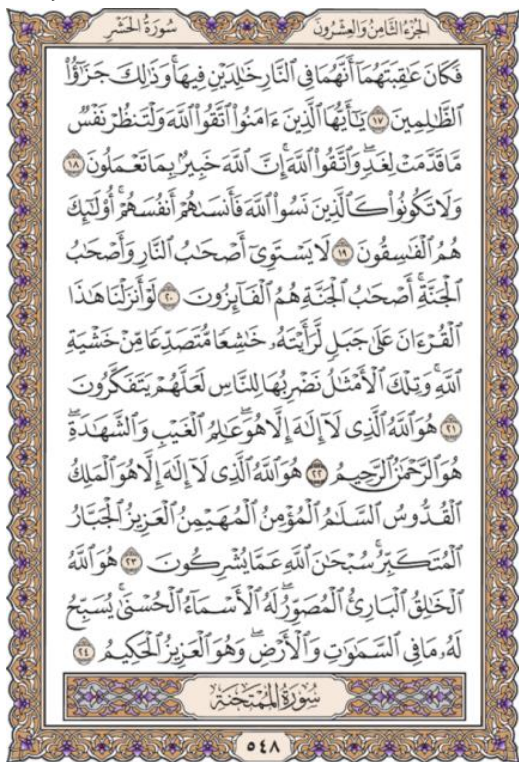 الجُزْءُ الثَّامِنُ وَالْعِشْرُونَ
سُورَةُ الحَشْرِ
فَكَانَ عَٰقِبَتَهُمَآ أَنَّهُمَا فِي ٱلنَّارِ خَٰلِدَيْنِ فِيهَاۚ وَذَٰلِكَ جَزَٰٓؤُاْ
ٱلظَّٰلِمِينَ ١٧ يَٰٓأَيُّهَا ٱلَّذِينَ ءَامَنُواْ ٱتَّقُواْ ٱللَّهَ وَلْتَنظُرْ نَفْسٌ
مَّا قَدَّمَتْ لِغَدٍۖ وَٱتَّقُواْ ٱللَّهَۚ إِنَّ ٱللَّهَ خَبِيرٌۢ بِمَا تَعْمَلُونَ ١٨
وَلَا تَكُونُواْ كَٱلَّذِينَ نَسُواْ ٱللَّهَ فَأَنسَىٰهُمْ أَنفُسَهُمْۚ أُوْلَٰٓئِكَ
هُمُ ٱلْفَٰسِقُونَ ١٩ لَا يَسْتَوِيٓ أَصْحَٰبُ ٱلنَّارِ وَأَصْحَٰبُ
ٱلْجَنَّةِۚ أَصْحَٰبُ ٱلْجَنَّةِ هُمُ ٱلْفَآئِزُونَ ٢٠ لَوْ أَنزَلْنَا هَٰذَا
ٱلْقُرْءَانَ عَلَىٰ جَبَلٍ لَّرَأَيْتَهُۥ خَٰشِعًا مُّتَصَدِّعًا مِّنْ خَشْيَةِ
ٱللَّهِۚ وَتِلْكَ ٱلْأَمْثَٰلُ نَضْرِبُهَا لِلنَّاسِ لَعَلَّهُمْ يَتَفَكَّرُونَ
٢١ هُوَ ٱللَّهُ ٱلَّذِي لَآ إِلَٰهَ إِلَّا هُوَۖ عَٰلِمُ ٱلْغَيْبِ وَٱلشَّهَٰدَةِۖ
هُوَ ٱلرَّحْمَٰنُ ٱلرَّحِيمُ ٢٢ هُوَ ٱللَّهُ ٱلَّذِي لَآ إِلَٰهَ إِلَّا هُوَ ٱلْمَلِكُ
ٱلْقُدُّوسُ ٱلسَّلَٰمُ ٱلْمُؤْمِنُ ٱلْمُهَيْمِنُ ٱلْعَزِيزُ ٱلْجَبَّارُ
ٱلْمُتَكَبِّرُۚ سُبْحَٰنَ ٱللَّهِ عَمَّا يُشْرِكُونَ ٢٣ هُوَ ٱللَّهُ
ٱلْخَٰلِقُ ٱلْبَارِئُ ٱلْمُصَوِّرُۖ لَهُ ٱلْأَسْمَآءُ ٱلْحُسْنَىٰۚ يُسَبِّحُ
لَهُۥ مَا فِي ٱلسَّمَٰوَٰتِ وَٱلْأَرْضِۖ وَهُوَ ٱلْعَزِيزُ ٱلْحَكِيمُ ٢٤
سُورَةُ المُمْتَحنَةِ
٥٤٨